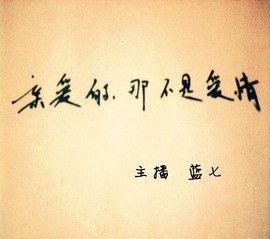 亲爱的、那不是爱情
主播 蓝七